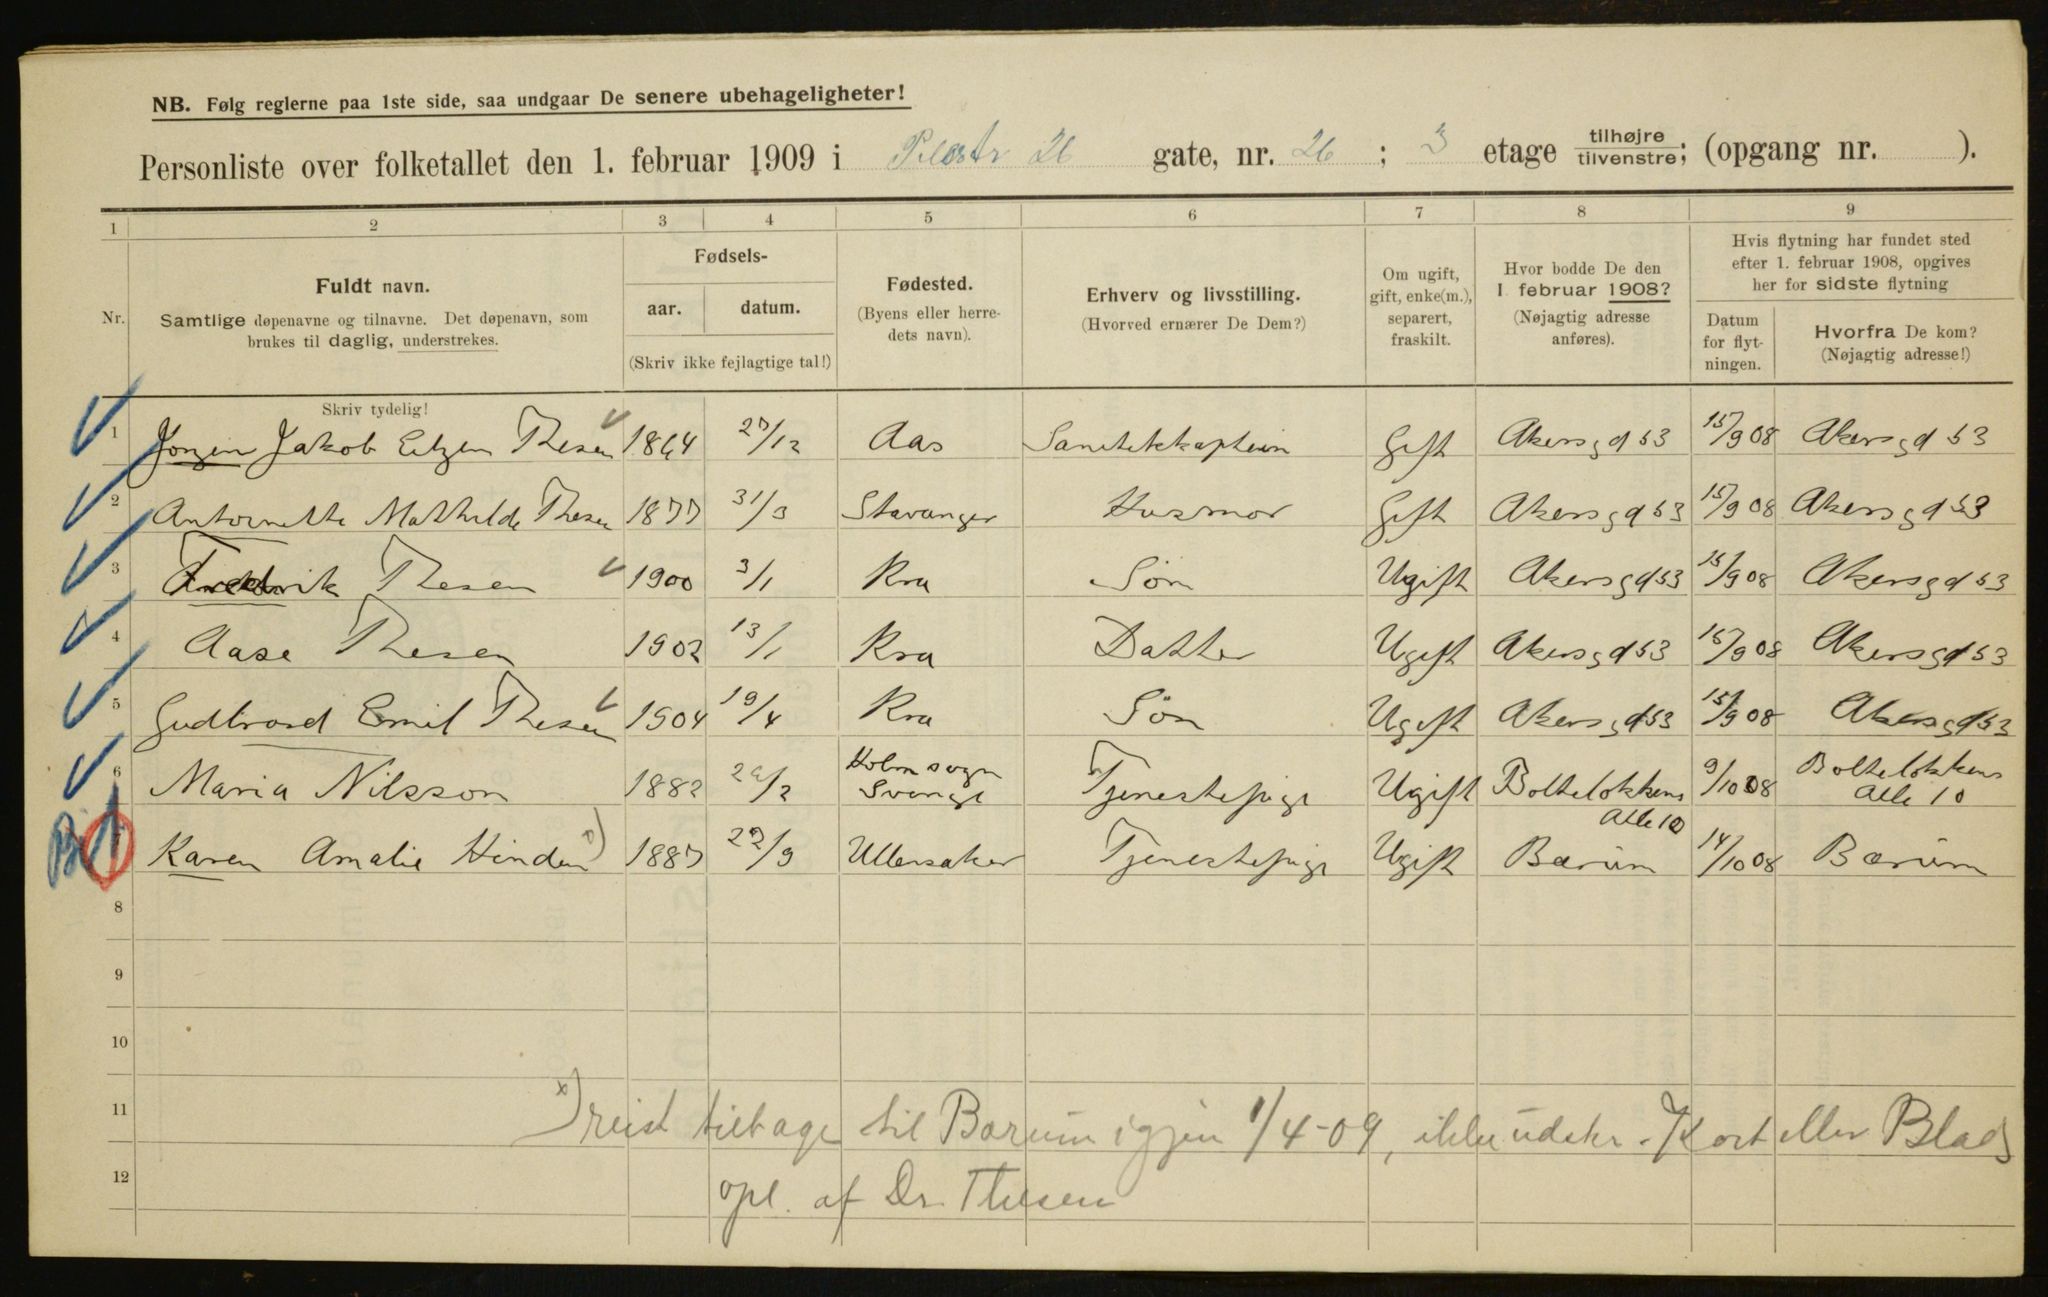 NB. Følg reglerne paa 1ste side, saa undgaar De senere ubehageligheter!
Personliste over folketallet den 1. februar 1909 i Pilestr 26 gate, nr. 26 ; 3 etage tilhøjre / tilvenstre; (opgang nr. ).
1 2 3 4 5 6 7 8 9
Nr.
Fuldt navn.
Samtlige døpenavne og tilnavne. Det døpenavn, som
brukes til daglig, understrekes.
Skriv tydelig!
Fødsels-
aar. datum.
(Skriv ikke fejlagtige tal!)
Fødested.
(Byens eller herre-
dets navn).
Erhverv og livsstilling.
(Hvorved ernærer De Dem?)
Om ugift,
gift, enke(m.),
separert,
fraskilt.
Hvor bodde De den
1. februar 1908?
(Nøjagtig adresse
anføres).
Hvis flytning har fundet sted
efter 1. februar 1908, opgives
her for sidste flytning
Datum
for flyt-
ningen.
Hvorfra De kom?
(Nøjagtig adresse!)
1 Jørgen Jakob Eitzen Thesen 1864 27/12 Aas Sanitetskaptein Gift Akersgd 53 15/9 08 Akersgd 53
2 Antoinette Mathilde Thesen 1877 31/3 Stavanger Husmor Gift Akersgd 53 15/9 08 Akersgd 53
3 Fredrik Thesen 1900 3/1 Kra Søn Ugift Akersgd 53 15/9 08 Akersgd 53
4 Aase Thesen 1902 13/1 Kra Datter Ugift Akersgd 53 15/9 08 Akersgd 53
5 Gudbrand Emil Thesen 1904 19/4 Kra Søn Ugift Akersgd 53 15/9 08 Akersgd 53
6 Maria Nilsson 1882 /2 Holm sogn Sverige Tjenestepige Ugift Bolteløkkens Alle 10 9/10 08 Bolteløkkens Alle 10
7 Karen Amalie Hinden x) 1887 27/9 Ullensaker Tjenestepige Ugift Bærum 14/10 08 Bærum
8
9
10
11 x) reist tilbage til Bærum igjen 1/4-09, ikke udskr. Kort eller Blad
12 opl. af Dr. Thesen